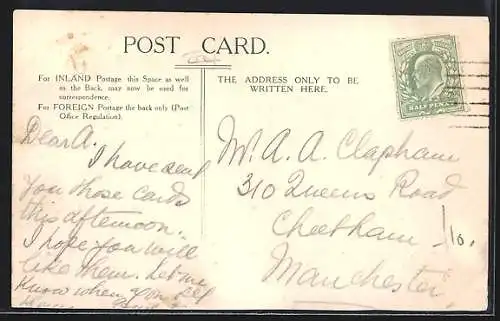 POST CARD.
For INLAND Postage this Space as well
as the Back, may now be used for
correspondence.
For FOREIGN Postage the back only (Post
Office Regulation).
THE ADDRESS ONLY TO BE
WRITTEN HERE.
HALF PENNY
Dear A.
I have sent
you those cards
this afternoon.
I hope you will
like them. Let me
know when you
Mr. A. A. Clapham
310 Queens Road
Cheetham
Manchester